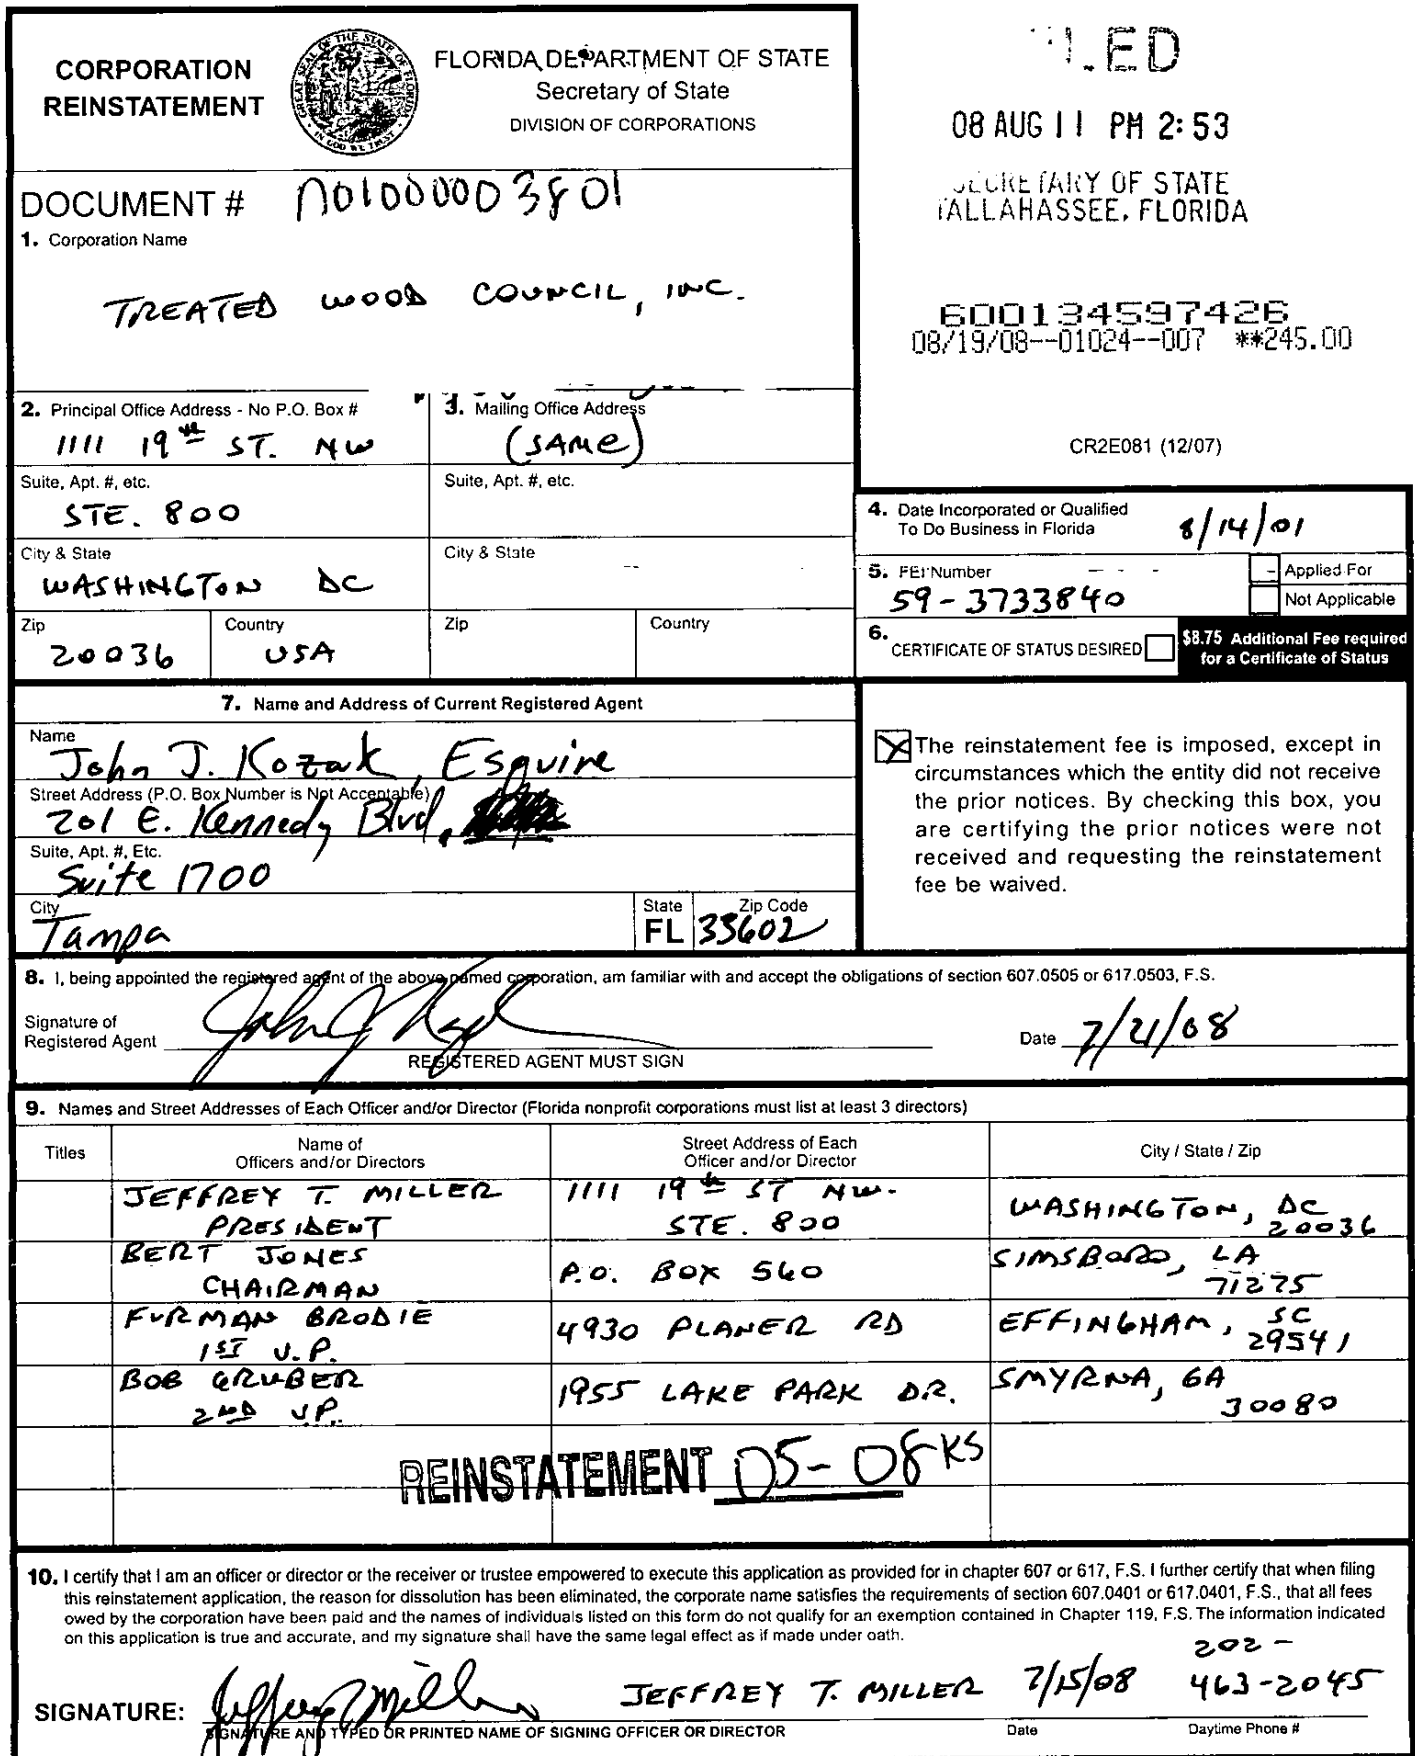 CORPORATION
REINSTATEMENT
GREAT SEAL OF THE STATE OF FLORIDA
IN GOD WE TRUST
FLORIDA DEPARTMENT OF STATE
Secretary of State
DIVISION OF CORPORATIONS
LED
08 AUG 11 PM 2:53
SECRETARY OF STATE
TALLAHASSEE, FLORIDA
DOCUMENT # N01000003801
1. Corporation Name
TREATED WOOD COUNCIL, INC.
600134597426
08/19/08--01024--007 **245.00
CR2E081 (12/07)
2. Principal Office Address - No P.O. Box #
1111 19th ST. NW
3. Mailing Office Address
(SAME)
Suite, Apt. #, etc.
STE. 800
Suite, Apt. #, etc.
City & State
WASHINGTON DC
City & State
Zip
20036
Country
USA
Zip
Country
4. Date Incorporated or Qualified
To Do Business in Florida
8/14/01
5. FEI Number
59-3733840
Applied For
Not Applicable
6. CERTIFICATE OF STATUS DESIRED
$8.75 Additional Fee required
for a Certificate of Status
7. Name and Address of Current Registered Agent
Name
John J. Kozak, Esquire
Street Address (P.O. Box Number is Not Acceptable)
201 E. Kennedy Blvd,
Suite, Apt. #, Etc.
Suite 1700
City
Tampa
State
FL
Zip Code
33602
The reinstatement fee is imposed, except in
circumstances which the entity did not receive
the prior notices. By checking this box, you
are certifying the prior notices were not
received and requesting the reinstatement
fee be waived.
8. I, being appointed the registered agent of the above named corporation, am familiar with and accept the obligations of section 607.0505 or 617.0503, F.S.
Signature of
Registered Agent
John J Kozak
REGISTERED AGENT MUST SIGN
Date 7/21/08
9. Names and Street Addresses of Each Officer and/or Director (Florida nonprofit corporations must list at least 3 directors)
Titles
Name of
Officers and/or Directors
Street Address of Each
Officer and/or Director
City / State / Zip
JEFFREY T. MILLER
PRESIDENT
1111 19th ST NW.
STE. 800
WASHINGTON, DC
20036
BERT JONES
CHAIRMAN
P.O. BOX 560
SIMSBORO, LA
71275
FURMAN BRODIE
1ST V.P.
4930 PLANER RD
EFFINGHAM, SC
29541
BOB GRUBER
2ND V.P.
1955 LAKE PARK DR.
SMYRNA, GA
30080
REINSTATEMENT 05-08 KS
10. I certify that I am an officer or director or the receiver or trustee empowered to execute this application as provided for in chapter 607 or 617, F.S. I further certify that when filing
this reinstatement application, the reason for dissolution has been eliminated, the corporate name satisfies the requirements of section 607.0401 or 617.0401, F.S., that all fees
owed by the corporation have been paid and the names of individuals listed on this form do not qualify for an exemption contained in Chapter 119, F.S. The information indicated
on this application is true and accurate, and my signature shall have the same legal effect as if made under oath.
SIGNATURE: Jeffrey T Miller JEFFREY T. MILLER 7/15/08
202-
463-2045
SIGNATURE AND TYPED OR PRINTED NAME OF SIGNING OFFICER OR DIRECTOR
Date
Daytime Phone #